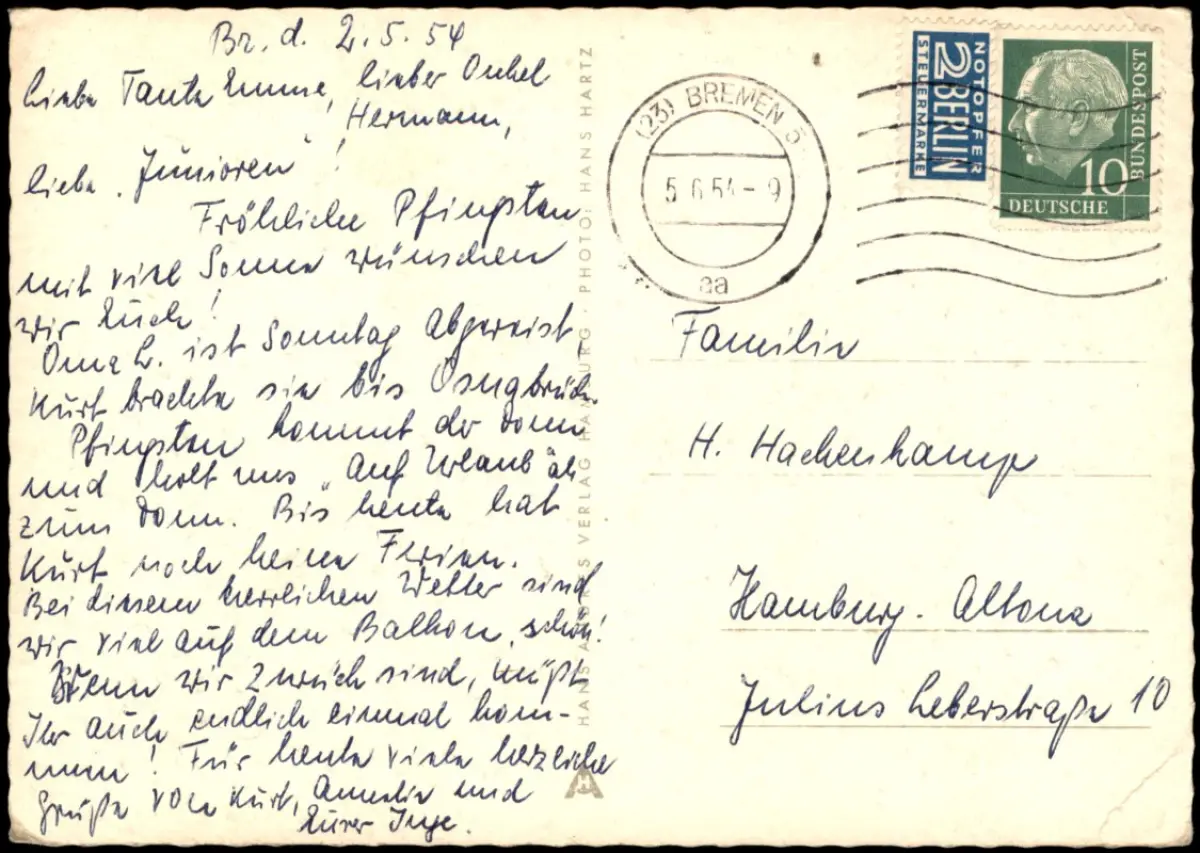 Br. d. 2.5.54
Liebe Tante Emme, lieber Onkel
Hermann,
liebe "Junioren"!
Fröhliche Pfingsten
mit viel Sonne wünschen
wir Euch!
Oma L. ist Sonntag abgereist,
Kurt brachte sie bis Osnabrück.
Pfingsten kommt der dann
und holt uns "auf Urlaub" ab
zum Dom. Bis heute hat
Kurt noch keine Ferien.
Bei diesem herrlichen Wetter sind
wir viel auf dem Balkon, schön!
Wenn wir zurück sind, müßt
Ihr auch endlich einmal kom-
men! Für heute viele herzliche
Grüße von Kurt, Amelie und
Eurer Inge.
HANS ANDRES VERLAG HAMBURG · PHOTO: HANS HARTZ
(23) BREMEN 5
5.6.54-9
aa
NOTOPFER
2 BERLIN
STEUERMARKE
10
DEUTSCHE
BUNDESPOST
Familie
H. Hackenkamp
Hamburg-Altona
Julius Leberstraße 10